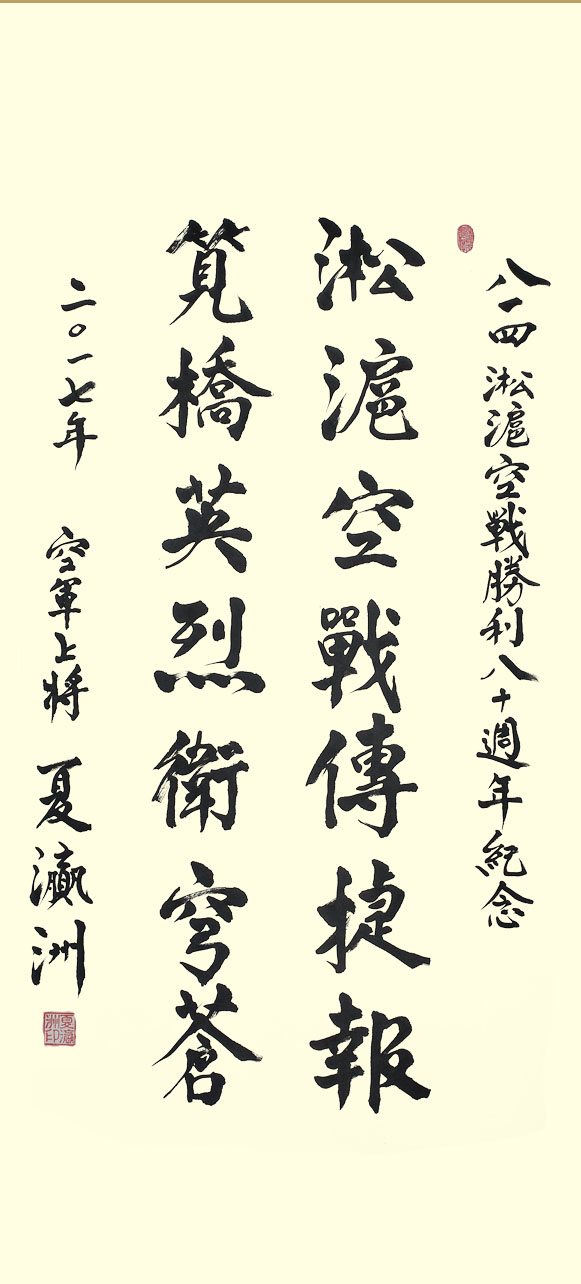 八一四淞滬空戰勝利八十週年紀念
淞滬空戰傳捷報
筧橋英烈衛穹蒼
二〇一七年 空軍上將 夏瀛洲
夏瀛洲印